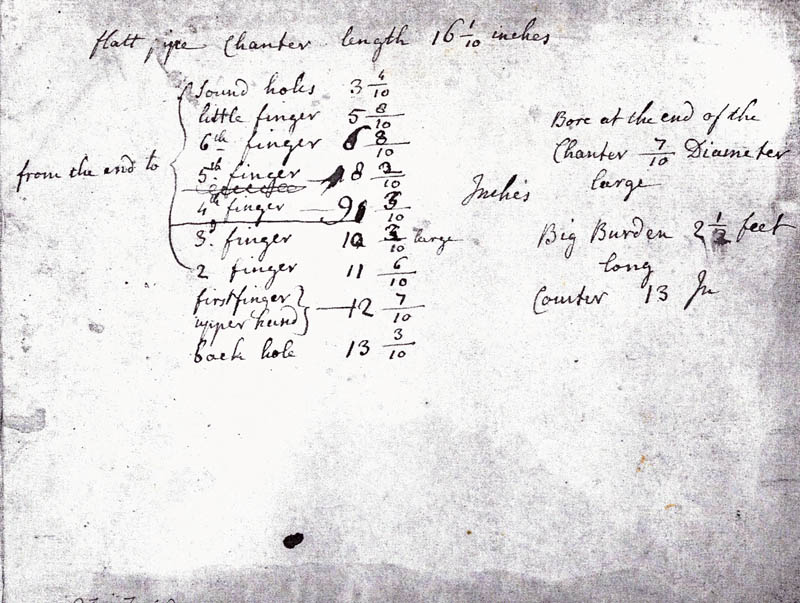 flatt pipe Chanter length 16 1/10 inches
from the end to
Sound holes 3 4/10
little finger 5 8/10
6th finger 6 8/10
5th finger 8 3/10
4th finger 9 3/10
3d finger 10 3/10 large
2 finger 11 6/10
first finger
upper hand 12 7/10
back hole 13 3/10
Inches
Bore at the end of the
Chanter 7/10 Diameter
large
Big Burden 2 1/2 feet
long
Counter 13 In